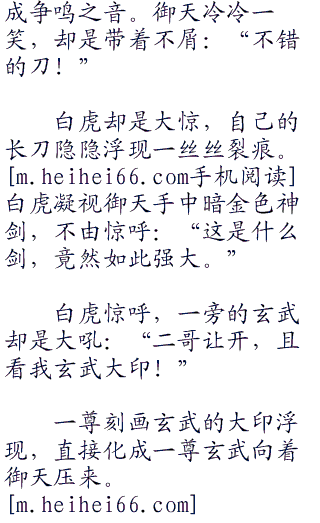 成争鸣之音。御天冷冷一
笑，却是带着不屑：“不错
的刀！”
白虎却是大惊，自己的
长刀隐隐浮现一丝丝裂痕。
[m.heihei66.com手机阅读]
白虎凝视御天手中暗金色神
剑，不由惊呼：“这是什么
剑，竟然如此强大。”
白虎惊呼，一旁的玄武
却是大吼：“二哥让开，且
看我玄武大印！”
一尊刻画玄武的大印浮
现，直接化成一尊玄武向着
御天压来。
[m.heihei66.com]